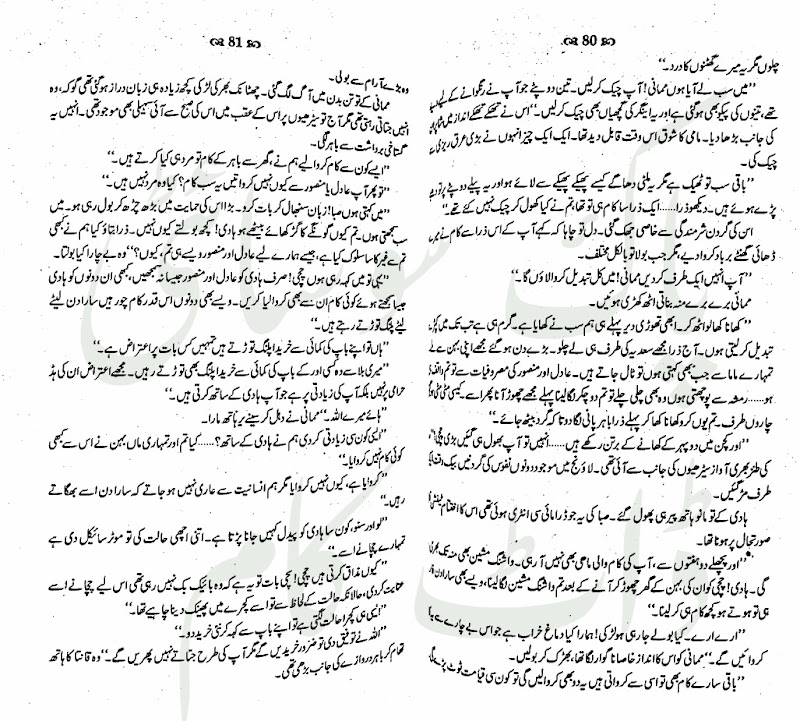 80
چلوں مگر یہ میرے گھٹنوں کا درد۔‘‘
’’میں سب لے آیا ہوں ممانی! آپ چیک کر لیں۔ تین دوپٹے جو آپ نے رنگوانے کے لیے
تھے، تینوں کی پیکو بھی ہو گئی ہے اور یہ اینگر کی گچھیاں بھی چیک کر لیں۔‘‘ اس نے تھکے تھکے انداز میں
کی جانب بڑھا دیا۔ مامی کا شوق اس وقت قابل دید تھا۔ ایک ایک چیز انہوں نے بڑی عرق ریزی سے
چیک کی۔
’’باقی سب تو ٹھیک ہے مگر یہ نلٹی دھاگے کیسے پھیکے پھیکے سے لائے ہو اور یہ پہلے دوپٹے پر تو
پڑے ہوئے ہیں۔ دیکھو ذرا……ایک ذرا سا کام ہی تو تھا، ہم نے کیا کھول کر چیک نہیں کئے تھے۔‘‘
اس کی گردن شرمندگی سے خاصی جھک گئی۔ دل تو چاہا کہ کہے آپ کے اس ذرا سے کام نے میرے
ڈھائی گھنٹے برباد کروا دیے، مگر جب بولا تو بالکل مختلف۔
’’آپ انہیں ایک طرف کر دیں ممانی! میں کل تبدیل کروا لاؤں گا۔‘‘
ممانی برے برے منہ بناتی اٹھ کھڑی ہوئیں۔
’’کھانا کھا لو اٹھ کر۔ ابھی تھوڑی دیر پہلے ہی ہم سب نے کھایا ہے۔ گرم ہی ہے تب تک میں
تبدیل کر لیتی ہوں۔ آج ذرا مجھے سعدیہ کی طرف ہی لے چلو۔ بڑے دن ہو گئے مجھے اپنی بہن سے
تمہارے ماما سے جب بھی کہتی ہوں تو ٹال جاتے ہیں۔ عادل اور منصور کی مصروفیات سے تم
ہو……رمشہ سے پوچھتی ہوں وہ بھی چلی چلے تو تم دو چکر لگا لینا پہلے مجھے چھوڑ آنا پھر اسے۔ کیسی مٹی
چاروں طرف۔ تم یوں کرو کھانا کھا کر پہلے ذرا باہر پانی لگا دو تا کہ گرد بیٹھ جائے۔‘‘
’’اور کچن میں دوپہر کے کھانے کے برتن رکھے ہیں……انہیں تو آپ بھول ہی گئیں بڑی چچی!‘‘
کی طنز بھری آواز سیڑھیوں کی جانب سے آئی تھی۔ لاؤنج میں موجود دونوں نفوس کی گردنیں بیک وقت
طرف مڑ گئیں۔
ہادی کے تو مانو ہاتھ پیر ہی پھول گئے۔ صبا کی یہ جو ڈرامائی سی انٹری ہوئی تھی اس کا اختتام
صورتحال پر ہونا تھا۔
’’اور پچھلے دو ہفتوں سے، آپ کی کام والی ماسی بھی نہیں آ رہی۔ واشنگ مشین بھی منہ تک
گی۔ ہادی! چچی کو ان کی بہن کے گھر چھوڑ کر آنے کے بعد تم واشنگ مشین لگا لینا، ویسے بھی سارا دن
ہی تو ہوتے ہو کچھ کام ہی کر لینا۔‘‘
’’ارے ارے۔ کیا بولے جا رہی ہو لڑکی! ہمارا کیا دماغ خراب ہے جو اس بے چارے سے
کروائیں گے۔‘‘ ممانی کو اس کا انداز خاصا ناگوار لگا تھا، بھڑک کر بولیں۔
’’باقی سارے کام بھی تو اسی سے کرواتی ہیں یہ دو بھی کروا لیں گی تو کون سی قیامت ٹوٹ پڑے گی
81
وہ بڑے آرام سے بولی۔
ممانی کے تو تن بدن میں آگ لگ گئی۔ چھٹانک بھر کی لڑکی کچھ زیادہ ہی زبان دراز ہو گئی تھی گو کہ، وہ
انہیں جتاتی رہتی تھی مگر آج تو سیڑھیوں پر اس کے عقب میں اس کی صبح سے آئی سہیلی بھی موجود تھی۔ انہیں یہ
گستاخی برداشت سے باہر لگی۔
’’ایسے کون سے کام کروا لیے ہم نے، گھر سے باہر کے کام تو مرد ہی کیا کرتے ہیں۔‘‘
’’تو پھر آپ عادل یا منصور سے کیوں نہیں کرواتیں یہ سب کام؟ کیا وہ مرد نہیں ہیں۔‘‘
’’میں کہتی ہوں صبا! زبان سنبھال کر بات کرو۔ بڑا اس کی حمایت میں بڑھ چڑھ کر بول رہی ہو۔ میں
سب سمجھتی ہوں۔ تم کیوں گونگے کا گڑ کھائے بیٹھے ہو ہادی! کچھ بولتے کیوں نہیں۔ ذرا بتاؤ کیا ہم نے کبھی
تم سے غیر کا سا سلوک کیا ہے، جیسے ہمارے لیے عادل اور منصور ویسے ہی تم، کیوں؟‘‘ وہ بے چارا کیا بولتا۔
’’یہی تو میں کہہ رہی ہوں چچی! صرف ہادی کو عادل اور منصور جیسا نہ سمجھیں، کبھی ان دونوں کو ہادی
جیسا سمجھتے ہوئے کوئی کام ان سے بھی کروا لیا کریں۔ ویسے بھی دونوں اس قدر کام چور ہیں سارا دن لیٹے
لیٹے پلنگ توڑتے رہتے ہیں۔‘‘
’’ہاں تو اپنے باپ کی کمائی سے خریدا پلنگ توڑتے ہیں تمہیں کس بات پر اعتراض ہے۔‘‘
’’میری بلا سے وہ کسی اور کے باپ کی کمائی سے خریدا پلنگ بھی توڑتے رہیں۔ مجھے اعتراض ان کی ہڈ
حرامی پر نہیں بلکہ آپ کی زیادتی پر ہے جو آپ ہادی کے ساتھ کرتی ہیں۔‘‘
’’ہائے میرے اللہ۔‘‘ ممانی نے دہل کر سینے پر ہاتھ مارا۔
’’ایسی کون سی زیادتی کر دی ہم نے ہادی کے ساتھ؟……کیا تم اور تمہاری ماں بہن نے اس سے کبھی
کوئی کام نہیں کروایا۔‘‘
’’کروایا ہے، کیوں نہیں کروایا مگر ہم انسانیت سے عاری نہیں ہو جاتے کہ سارا دن اسے بھگاتے
رہیں۔‘‘
’’لو اور سنو، کون سا ہادی کو پیدل کہیں جانا پڑتا ہے۔ اتنی اچھی حالت کی تو موٹر سائیکل دی ہے
تمہارے چچا نے اسے۔‘‘
’’کیوں مذاق کرتی ہیں چچی! سچی بات تو یہ ہے کہ وہ بائیک بک نہیں رہی تھی اس لیے چچا نے اسے
عنایت کر دی، حالانکہ حالت کے لحاظ سے تو اسے کچرے میں پھینک دینا چاہیے تھا۔‘‘
’’ایسی ہی کچرا حالت لگتی ہے تو اپنے باپ سے کہہ کر نئی خرید دو۔‘‘
’’اللہ نے توفیق دی تو ضرور خریدیں گے مگر آپ کی طرح جتاتے نہیں پھریں گے۔‘‘ وہ فائنا کا ہاتھ
تھام کر باہر دروازے کی جانب بڑھی تھی۔